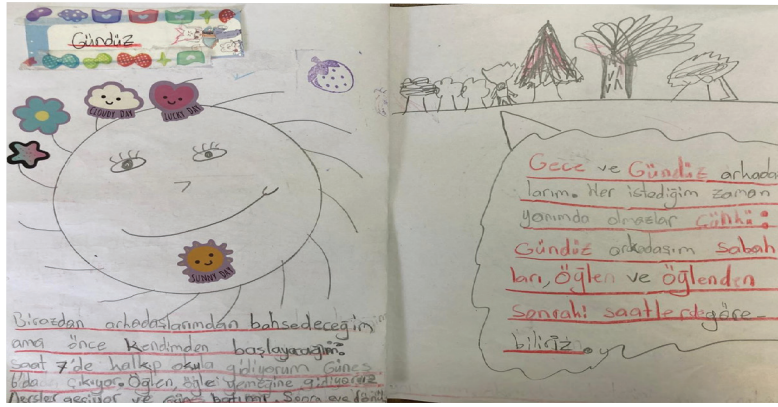 Gündüz
CLOUDY DAY
LUCKY DAY
SUNNY DAY
Birazdan arkadaşlarımdan bahsedeceğim
ama önce Kendimden başlayacağım.
saat 7'de halkıp okula gidiyorum Güneş
çıkıyor. Öğlen, öğle yemeğine gidiyoruz
Dersler geçiyor ve Sonra eve
Gece ve Gündüz arkada
larım. Her istediğim zaman
yanımda olmazlar Çünkü:
Gündüz arkadaşım sabah
ları, öğlen ve öğlenden
sonrahi saatlerde göre-
biliriz.